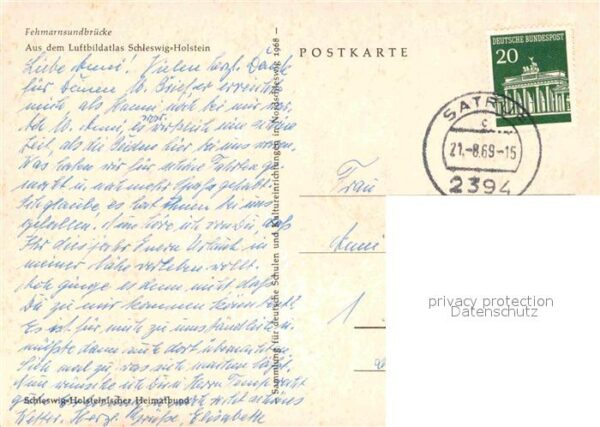 Fehmarnsundbrücke
Aus dem Luftbildatlas Schleswig-Holstein
Liebe Anni! Vielen herzl. Dank
für Deinen lb. Brief, er erreichte
mich als Hanni noch bei mir war.
Ach lb. Anni, es war wirklich eine schöne
Zeit, als die Beiden hier bei uns waren.
Was haben wir für schöne Fahrten ge-
macht u. was mehr Spaß gehabt.
Ich glaube es hat Ihnen bei uns
gefallen. Nun höre ich von Dir, daß
Ihr dies Jahr Euern Urlaub in
meiner Nähe verleben wollt.
Ach ginge es denn nicht daß
Du zu mir kommen könntest?
Es ist für mich zu umständlich u.
müßte dann auch dort übernachten
Sieh mal zu, was sich machen läßt.
Nun wünsche ich Dir u. Deinem
gutes schönes
Wetter. Herzl. Grüße, Elisabeth
Schleswig-Holsteinischer Heimatbund
Sammlung für deutsche Schulen und Kultureinrichtungen in Nordschleswig 1968 —
POSTKARTE
DEUTSCHE BUNDESPOST
20
SATRUP
c
21.-8.69-15
2394
Frau
Anni
1
privacy protection
Datenschutz